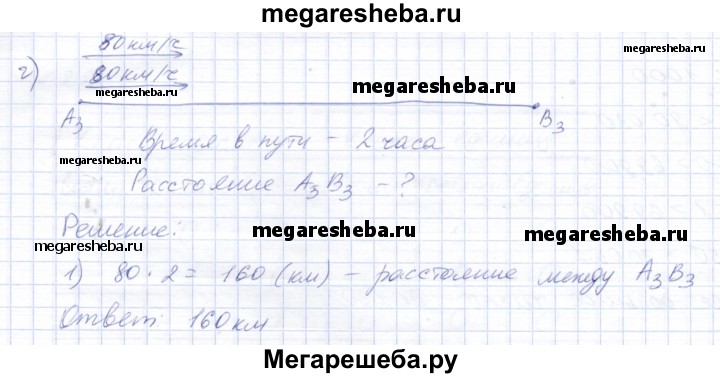 megaresheba.ru
80км/ч
г) 80км/ч
megaresheba.ru
megaresheba.ru
A3 B3
Время в пути - 2 часа
megaresheba.ru
Расстояние A3B3 - ?
Решение:
megaresheba.ru
megaresheba.ru
megaresheba.ru
1) 80 · 2 = 160 (км) - расстояние между A3B3
Ответ: 160км
Мегарешеба.ру